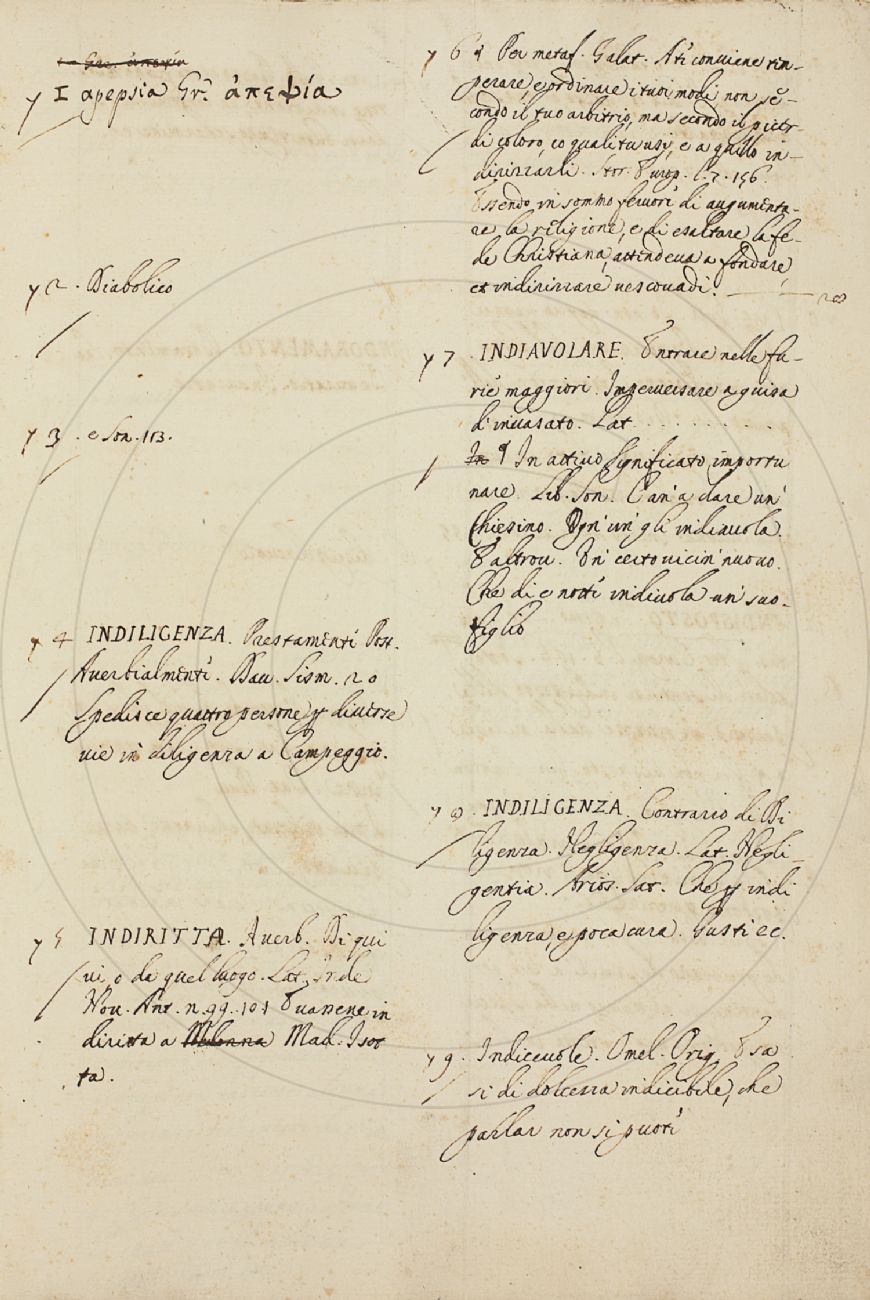 Gre. ἀπεψία
y 1 apepsia Gr. ἀπεψία
y 2. Diabolico
y 3. e Son. 113.
y 4 INDILIGENZA. Prestamente Post.
Averbialmente. Dav. Sism. 20
Spedisce quattro persone p diverse
vie in diligenza a Campeggio.
y 5 INDIRITTA. Averb. Di qui
vi, o da quel luogo. Lat. Inde
Nov. Ant. n. 99. 101 Evassene in
diritta a Mad. Isot
ta.
y 6 ¶ Per metaf. Galat. A te conviene tem-
perare, e ordinare i tuoi modi non se-
condo il tuo arbitrio, ma secondo il piacer
di coloro, co quali tu usi, e a quello in-
dirizzarli. Stor. Europ. l. 7. 156.
Essendo in sommo fervore di augumenta-
re la religione, e di esaltare la fe-
de Christiana, attendeva a fondare
et indirizzare vescovadi.
y 7. INDIAVOLARE. Entrare nelle fu-
rie maggiori. Imperversare a guisa
d'invasato. Lat. . . . . . . . . .
In ¶ In attivo significato importu
nare. Lib. Son. E an' a dare un'
Chiesino. Ogn' un' gli indiavola.
E altrov. Un' certo vicin' nuovo.
Che dì e notte indivola un' suo.
figlio
y 8. INDILIGENZA. Contrario di Di
ligenza. Negligenza. Lat. Negli-
gentia. Arios. Sat. Che p indi
ligenza, e poca cura. Gusti ec.
y 9. Indicevole. Omel. Orig. E sa
si di dolcezza indicibile, che
parlar non si puote